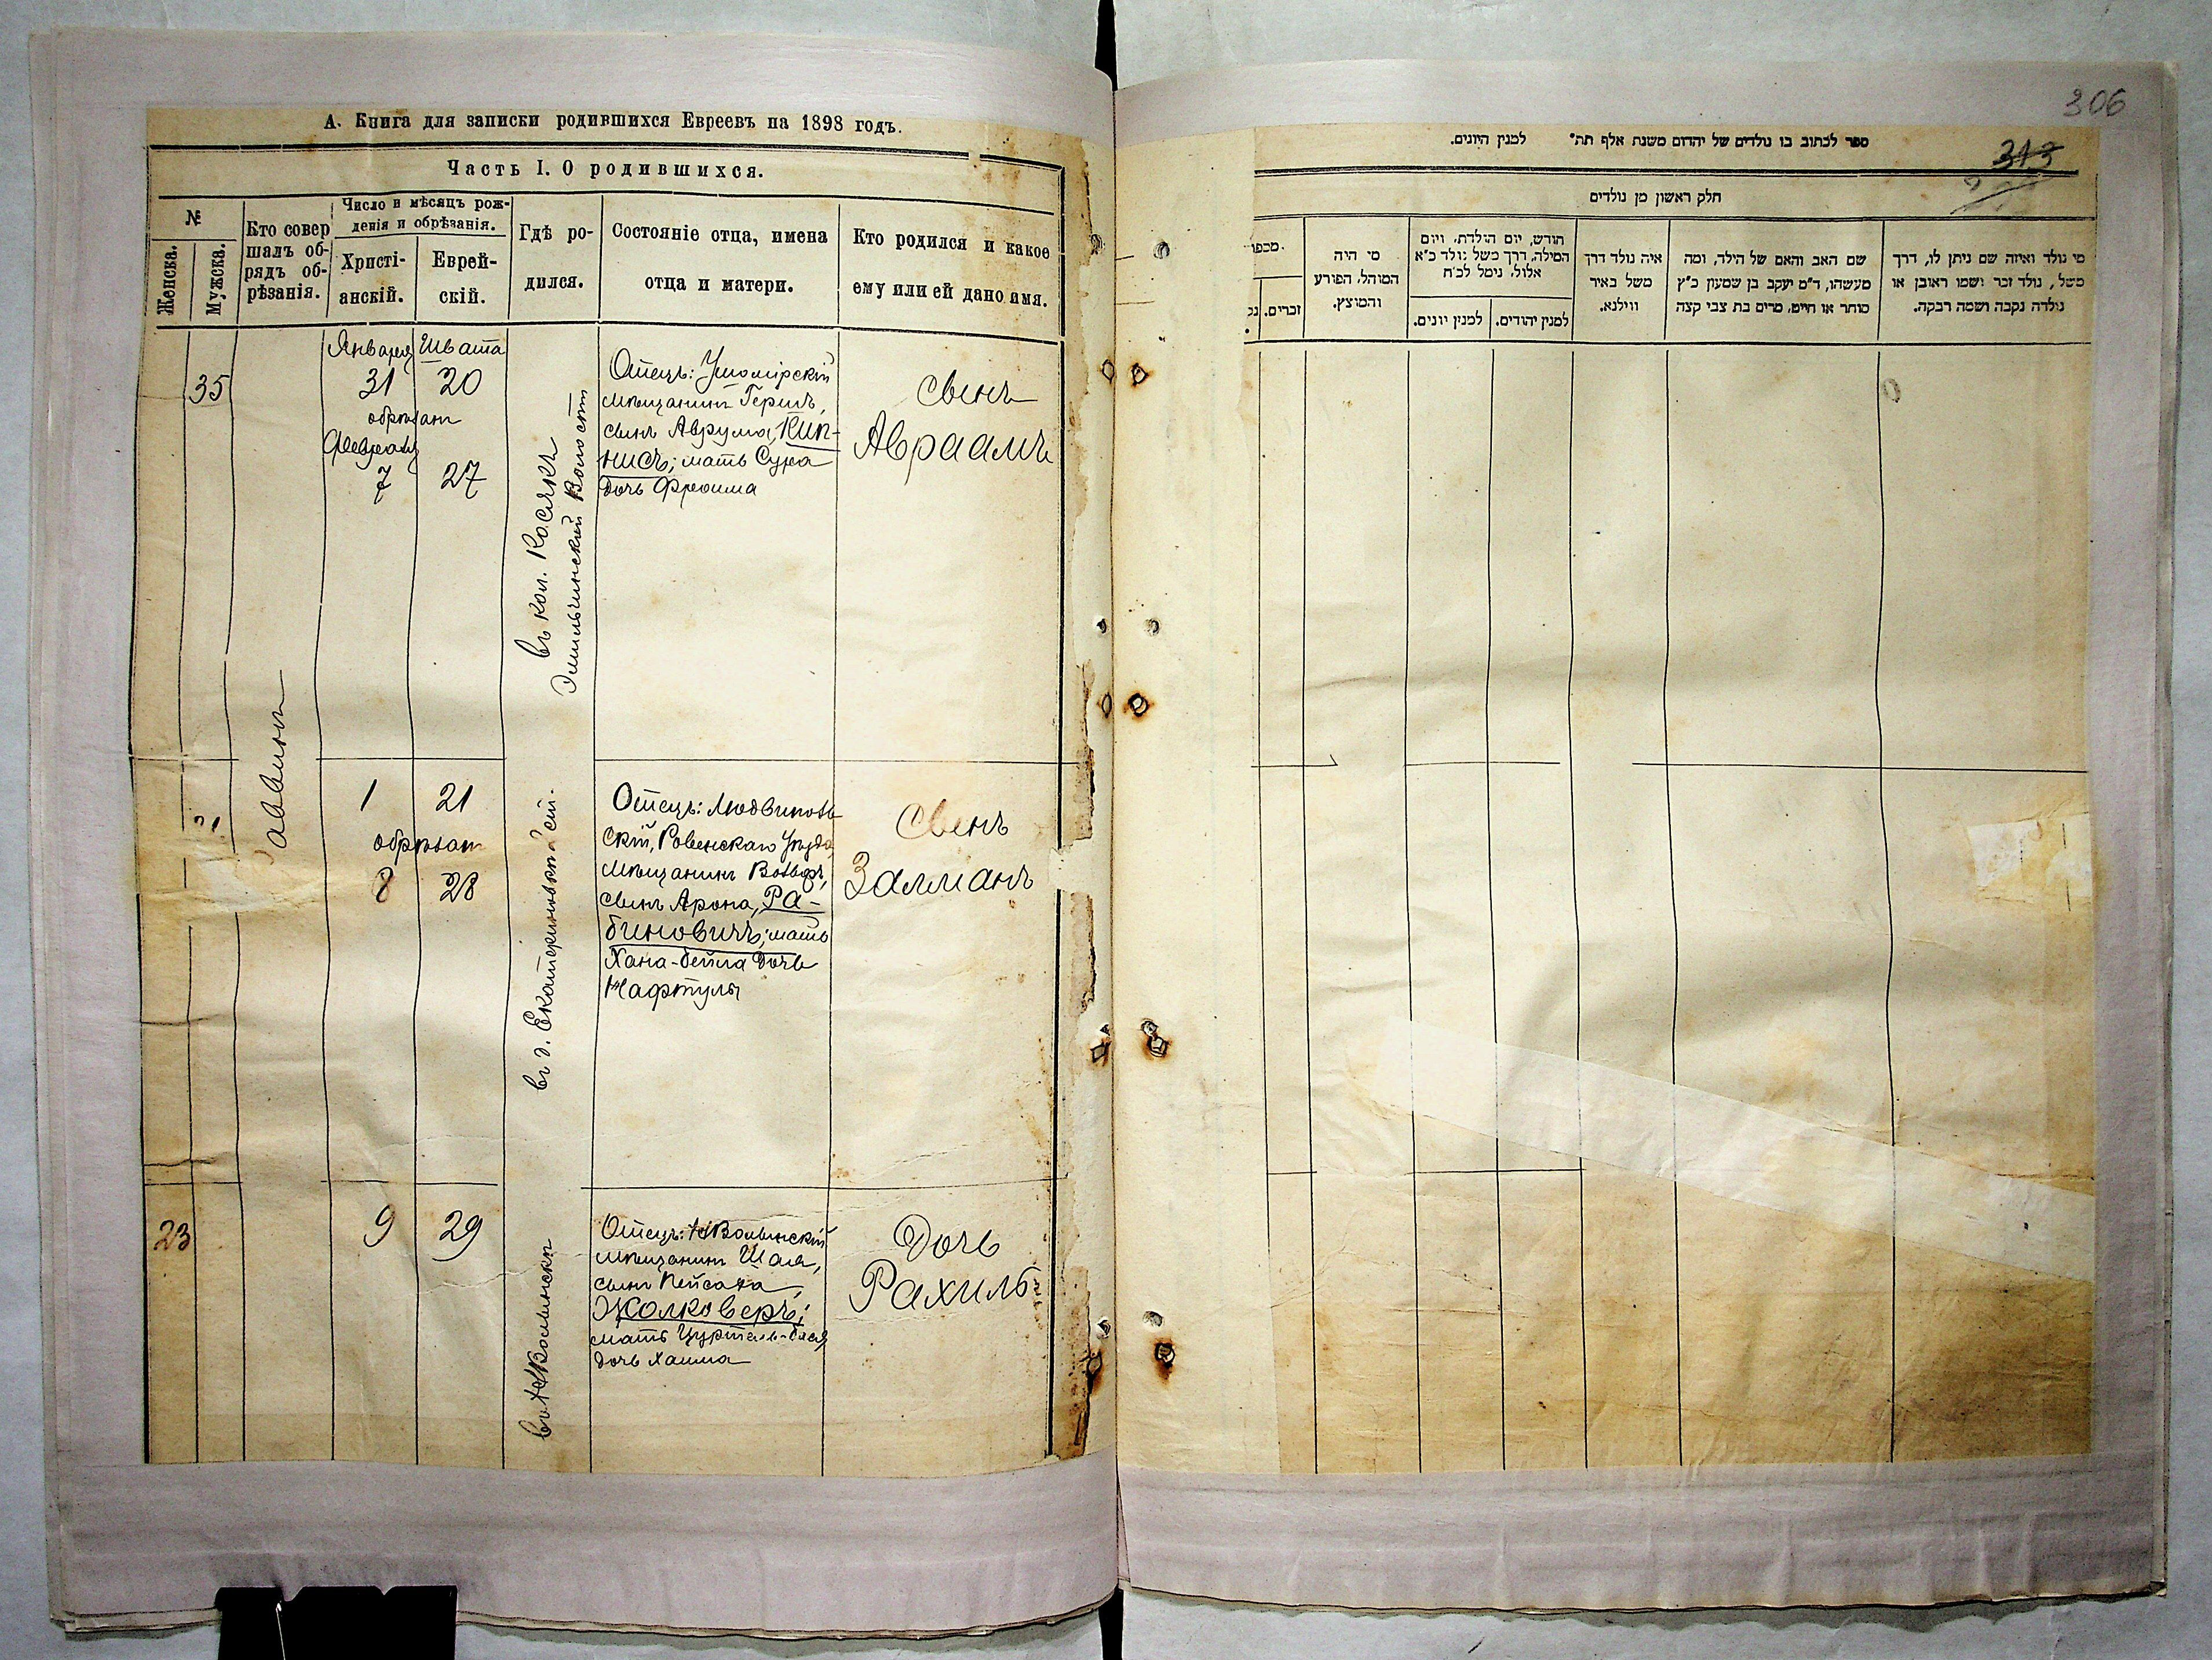 А. Книга для записки родившихся Евреевъ на 1898 годъ.
Часть I. О родившихся.
№
Женска.
Мужска.
Кто совер
шалъ об-
рядъ об-
рѣзанія.
Число и мѣсяцъ рож-
денія и обрѣзанія.
Христі-
анскій.
Еврей-
скій.
Гдѣ ро-
дился.
Состояніе отца, имена
отца и матери.
Кто родился и какое
ему или ей дано имя.
35
Января Швата
31 20
обрѣзанъ
Февраля
7 27
въ кол. Косякъ
Эмильчинской Волости
Отецъ: Ушомірскій
мѣщанинъ Гершъ,
сынъ Аврума, Кип-
нисъ; мать Сура
дочь Фроима
сынъ
Авраамъ
1 21
обрѣзанъ
8 28
въ д.
Отецъ: Людвиполь
скій, Ровенскаго уѣзда
мѣщанинъ Вольфъ,
сынъ Арона, Ра-
биновичъ; мать
Хана-Бейла дочь
Нафтулы
Сынъ
Залманъ
23
9 29
въ НВолынскѣ
Отецъ: НВолынскій
мѣщанинъ Шая,
сынъ Пейсаха
Жолкверъ;
мать
дочь Хаима
Дочь
Рахиль
306
313
ספר לכתוב בו נולדים של יהדום משנת אלף תת״ למנין היונים.
חלק ראשון מן נולדים
מי נולד ואיזה שם ניתן לו, דרך
משל, נולד זכר ושמו ראובן או
נולדה נקבה ושמה רבקה.
שם האב והאם של הילד, ומה
מעשהו, ד״מ יעקב בן שמעון כ״ץ
סוחר או חייט, מרים בת צבי קצה
איה נולד דרך
משל באיר
ווילנא.
חודש, יום הולדת, ויום
המילה, דרך משל נולד כ״א
אלול, נימל לכ״ח
למנין יהודים.
למנין יונים.
מי היה
המוהל, הפורע
והמוצץ.
מכפר
זכרים.